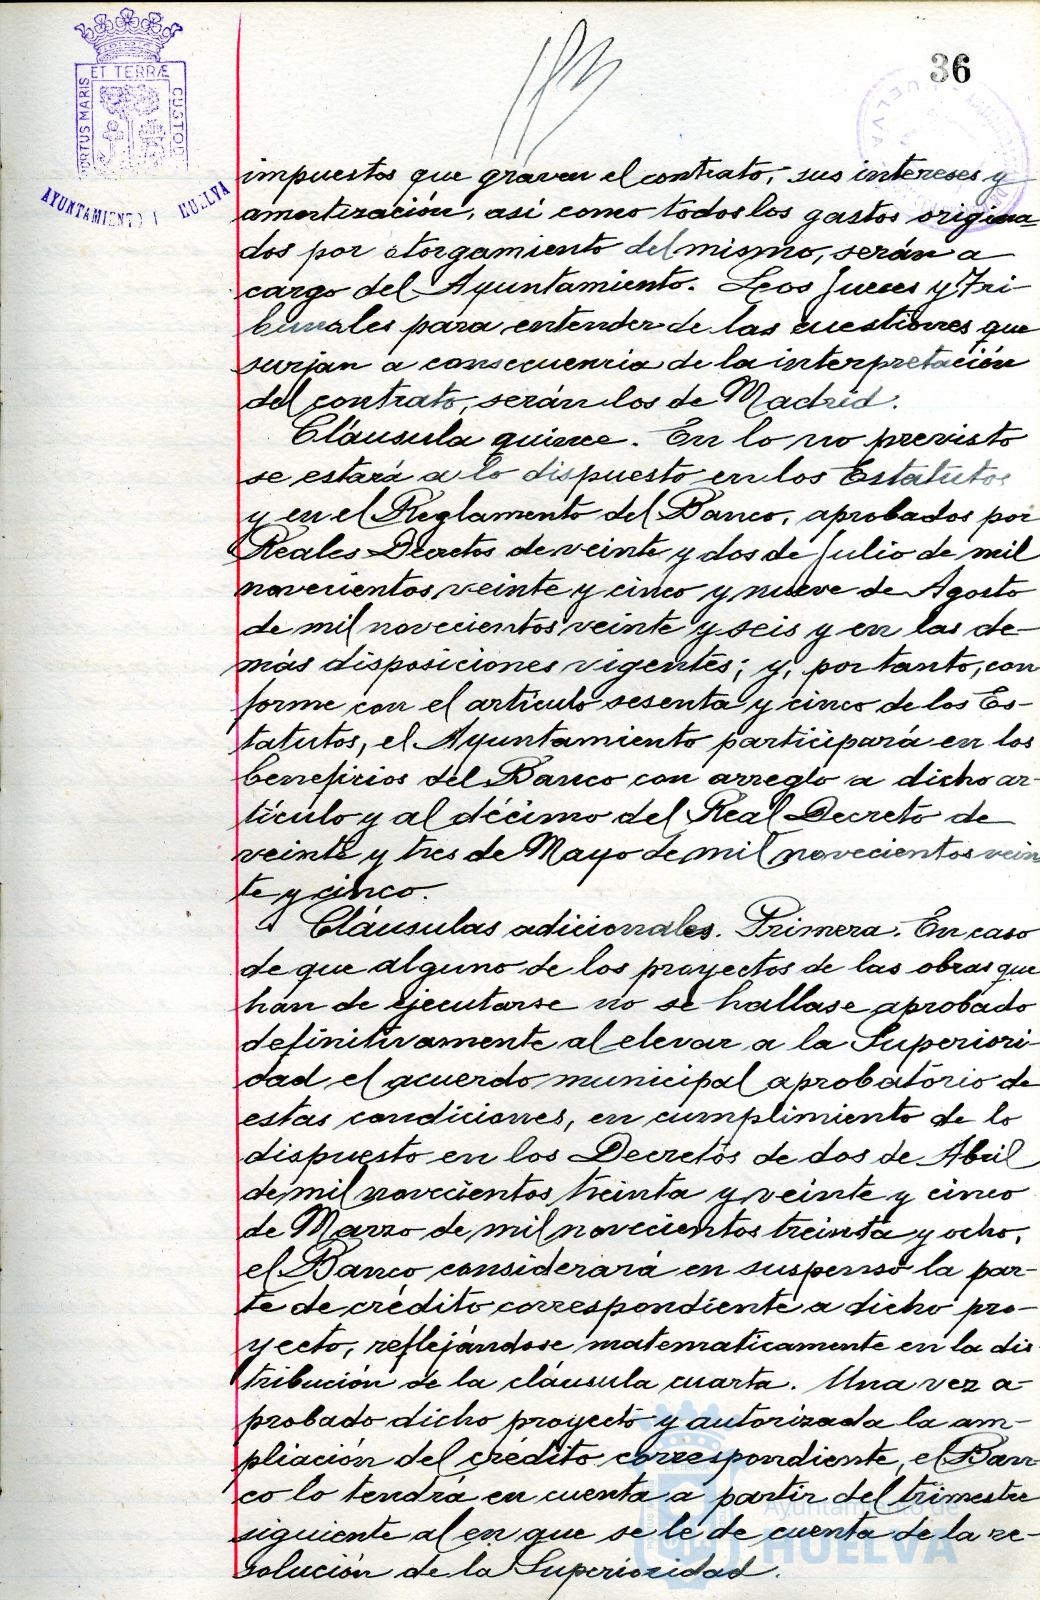 36
PORTUS MARIS ET TERRÆ CUSTOD
AYUNTAMIENTO HUELVA
impuestos que graven el contrato, sus intereses y
amortización, así como todos los gastos origina-
dos por otorgamiento del mismo, serán a
cargo del Ayuntamiento. Los Jueces y Tri-
bunales para entender de las cuestiones que
surjan a consecuencia de la interpretación
del contrato, serán los de Madrid.
Cláusula quince. En lo no previsto
se estará a lo dispuesto en los Estatutos
y en el Reglamento del Banco, aprobados por
Reales Decretos de veinte y dos de Julio de mil
novecientos veinte y cinco y nueve de Agosto
de mil novecientos veinte y seis y en las de-
más disposiciones vigentes; y, por tanto, con
forme con el artículo sesenta y cinco de los Es-
tatutos, el Ayuntamiento participará en los
beneficios del Banco con arreglo a dicho ar-
tículo y al décimo del Real Decreto de
veinte y tres de Mayo de mil novecientos vein
te y cinco.
Cláusulas adicionales. Primera. En caso
de que alguno de los proyectos de las obras que
han de ejecutarse no se hallase aprobado
definitivamente al elevar a la Superiori-
dad el acuerdo municipal aprobatorio de
estas condiciones, en cumplimiento de lo
dispuesto en los Decretos de dos de Abril
de mil novecientos treinta y veinte y cinco
de Marzo de mil novecientos treinta y ocho,
el Banco considerará en suspenso la par-
te de crédito correspondiente a dicho pro-
yecto, reflejándose matematicamente en la dis-
tribución de la cláusula cuarta. Una vez a-
probado dicho proyecto y autorizada la am-
pliación del crédito correspondiente, el Ban-
co lo tendrá en cuenta a partir del trimestre
siguiente al en que se le de cuenta de la re-
solución de la Superioridad.
Ayuntamiento de
HUELVA